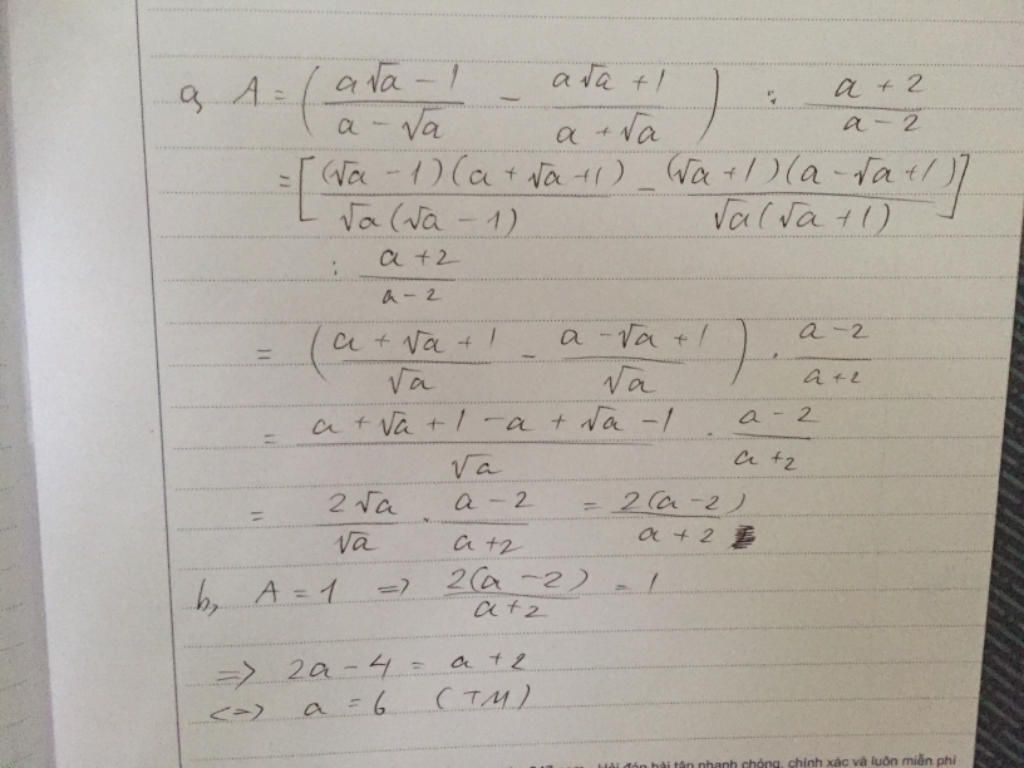 a, A = ( (a√a - 1)/(a - √a) - (a√a + 1)/(a + √a) ) : (a + 2)/(a - 2)
= [ (√a - 1)(a + √a + 1)/(√a(√a - 1)) - (√a + 1)(a - √a + 1)/(√a(√a + 1)) ]
: (a + 2)/(a - 2)
= ( (a + √a + 1)/√a - (a - √a + 1)/√a ) . (a - 2)/(a + 2)
= (a + √a + 1 - a + √a - 1)/√a . (a - 2)/(a + 2)
= 2√a/√a . (a - 2)/(a + 2) = 2(a - 2)/(a + 2)
b, A = 1 => 2(a - 2)/(a + 2) = 1
=> 2a - 4 = a + 2
<=> a = 6 (TM)
Hỏi đáp bài tập nhanh chóng, chính xác và luôn miễn phí